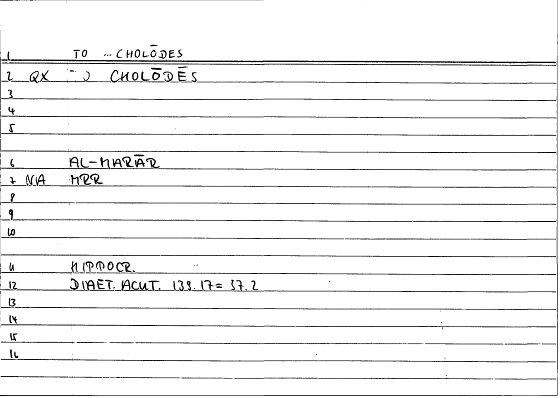 1 TO ...CHOLŌDES
2 QX TO CHOLŌDĒS
3
4
5
6 AL-MARĀR
7 NA MRR
8
9
10
11 HIPPOCR.
12 DIAET. ACUT. 139.17= 37.2
13
14
15
16